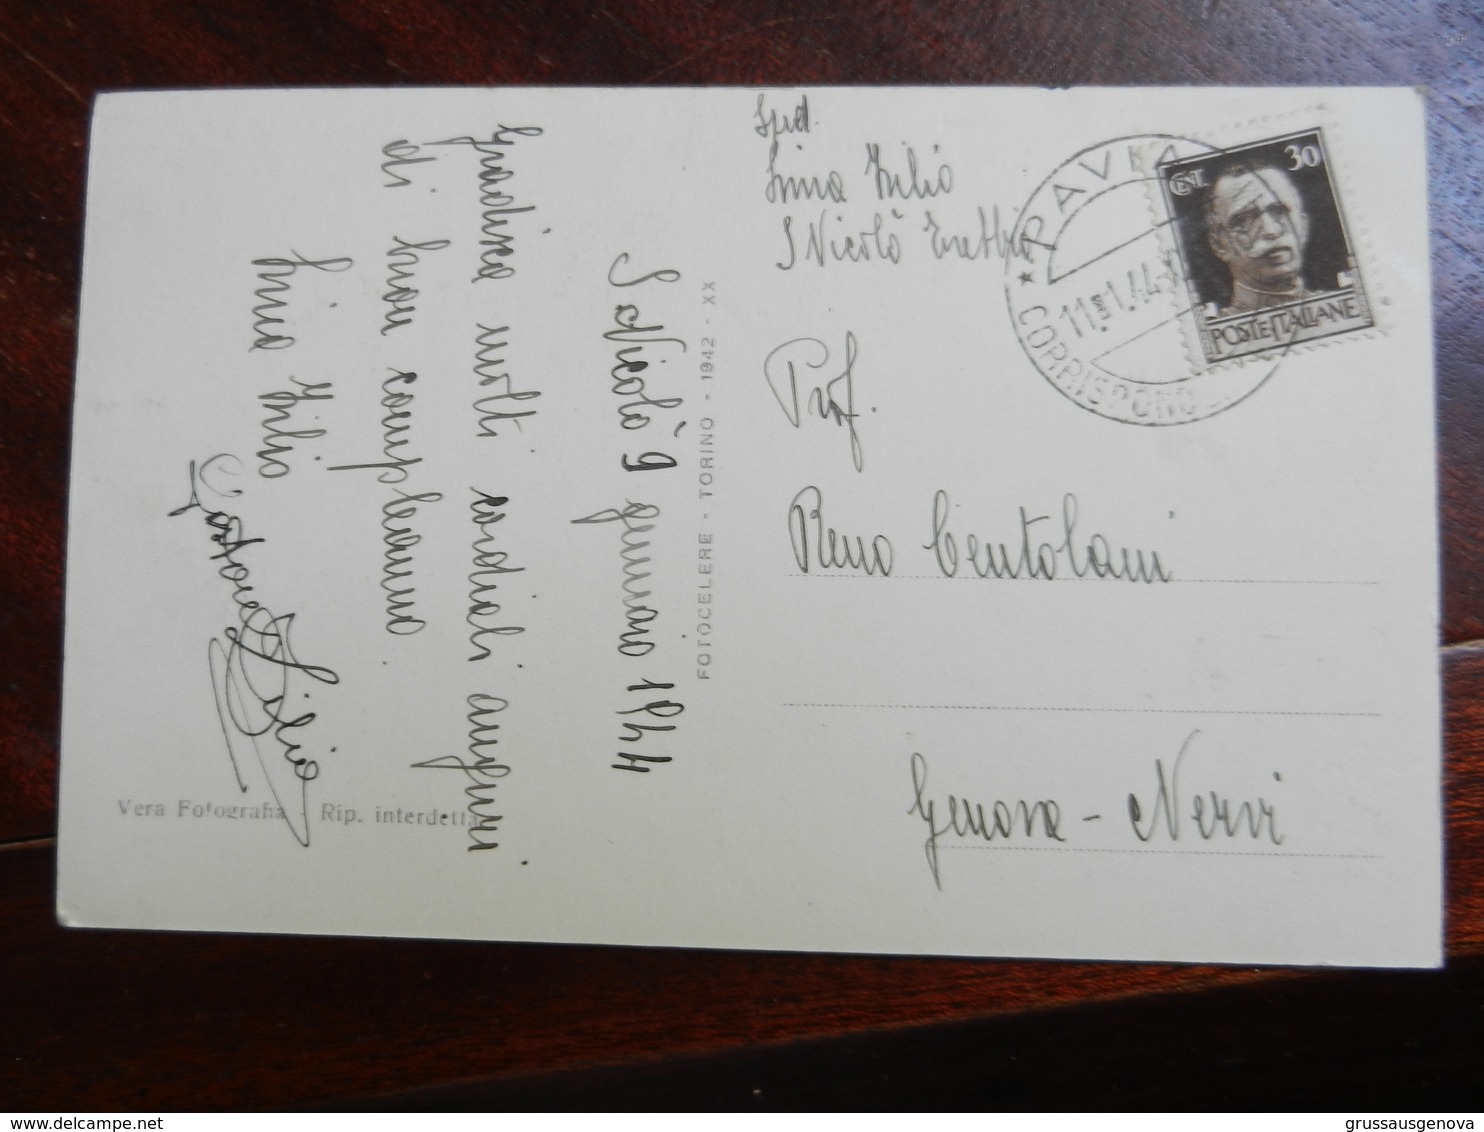 S. Nicolò 9 gennaio 1944
Gradisca molti cordiali auguri
di buon compleanno
Zilio
Vera Fotografia - Rip. interdetta
FOTOCELERE - TORINO - 1942 - XX
Sped.
Zilio
S Nicolò
Prof.
Reno Bentolani
Genova - Nervi
PAVIA
11.1.44
CORRISPOND
CENT. 30
POSTE ITALIANE
www.delcampe.net
grussausgenova